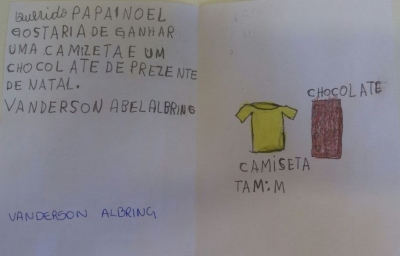 Querido PAPAINOEL
GOSTARIA DE GANHAR
UMA CAMIZETA E UM
CHOCOLATE DE PREZENTE
DE NATAL.
VANDERSON ABELALBRING
VANDERSON ALBRING
CHOCOLATE
CAMISETA
TAM:M